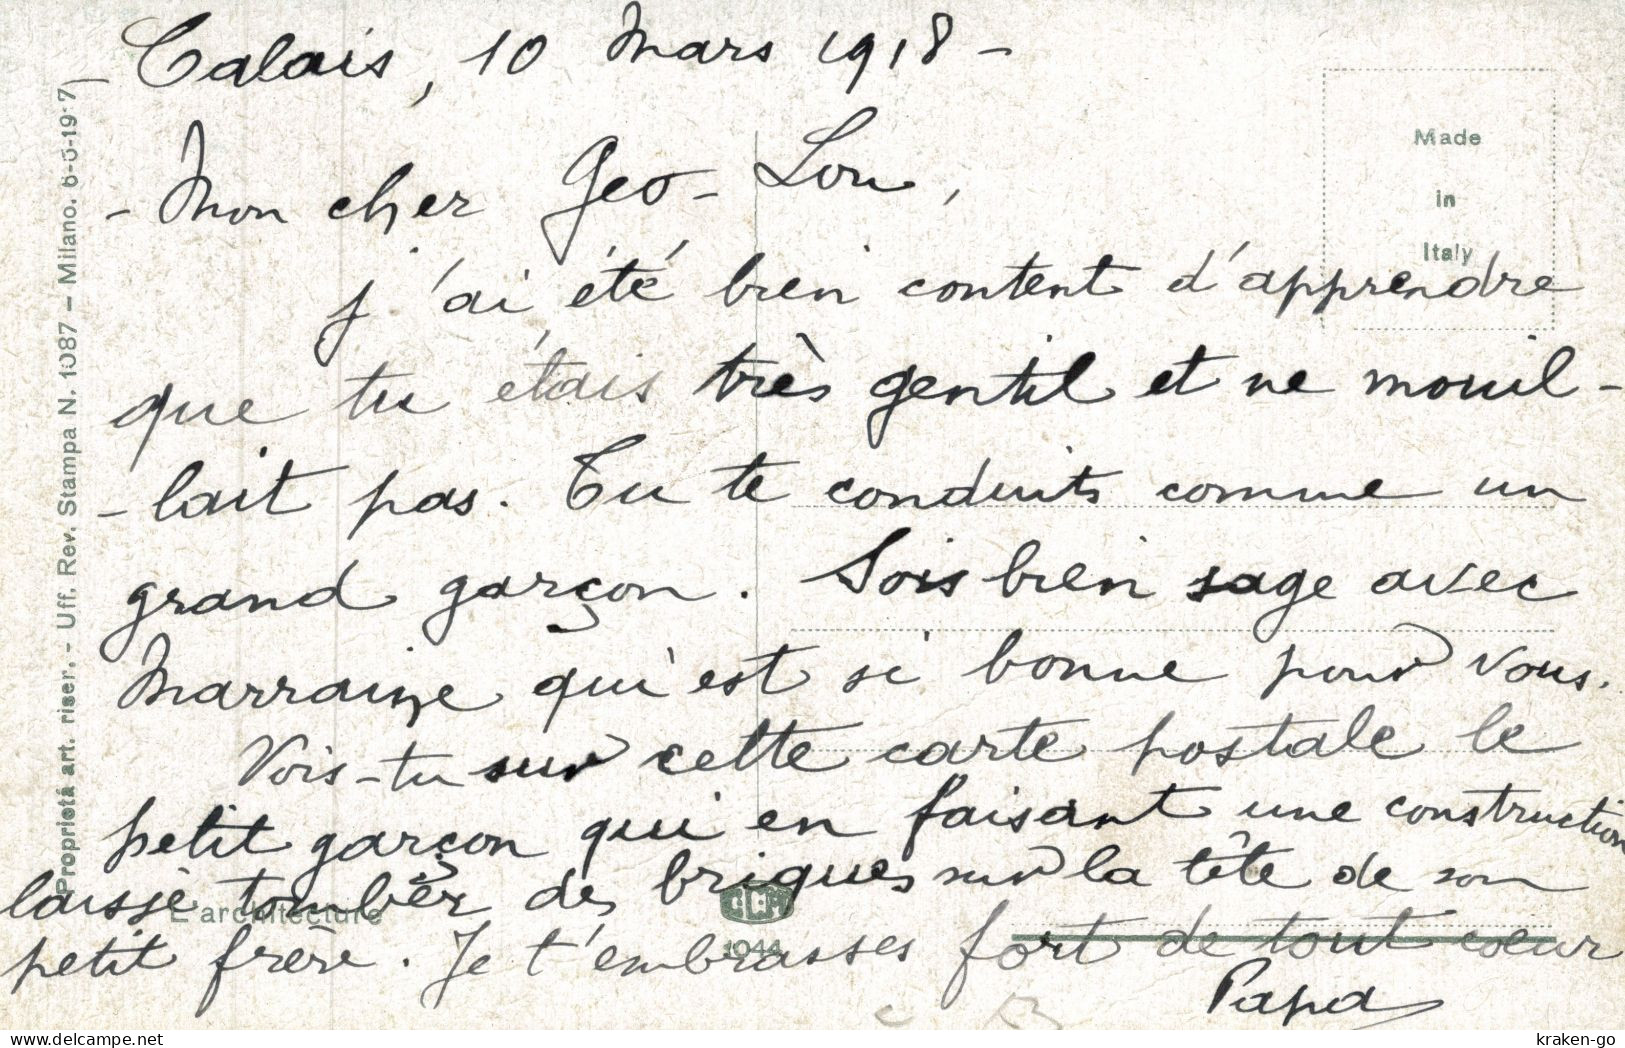 - Calais, 10 Mars 1918 -
- Mon cher Geo-Lou,
j'ai été bien content d'apprendre
que tu étais très gentil et ne mouil-
-lait pas. Tu te conduits comme un
grand garçon. Sois bien sage avec
Marraine qui est si bonne pour vous.
Vois-tu sur cette carte postale le
petit garçon qui en faisant une construction
laisse tomber des briques sur la tête de son
petit frère. Je t'embrasses fort de tout coeur
Papa
Made
in
Italy
Proprietá art. riser. - Uff. Rev. Stampa N. 1087 - Milano. 6-5-1917
L'architecture
1044
kraken-go